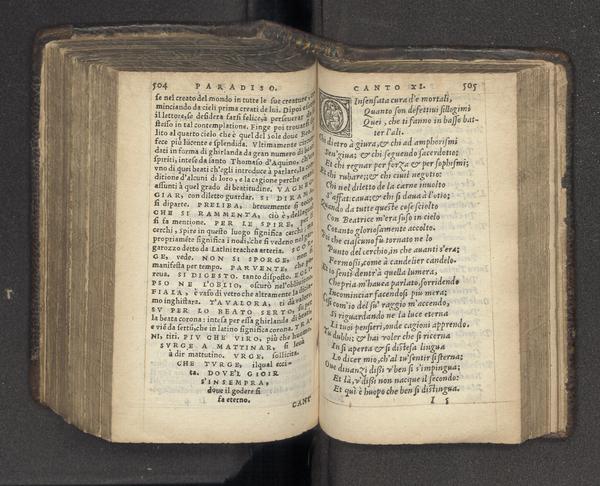 504 PARADISO.
se nel creato del mondo in tutte le sue creature,
minciando da cieli prima creati de lui. Dipoi
il lettore, se desidera farsi felice, a perseuerar
stesso in tal contemplatione. Finge poi trouarsi
lito al quarto cielo che è quel del sole doue
fece più lucente e splendida. Vltimamente
dati in forma di ghirlanda da gran numero di beati
spiriti, intese da santo Thomaso d'Aquino,
vno di quei beati ch'egli introduce à parlare, la
ditione d'alcuni di loro, e la cagione perche
assunti à quel grado di beatitudine. VAGHEG
GIAR, con diletto guardar. SI DIRAMA
si diparte. PRELIBA, breuemente si
CHE SI RAMMENTA, ciò è, della
si fa mentione. PER LE SPIRE, per
cerchi, spire in questo luogo significa cerchi,
propriamẽte significa i nodi, che si vedono nel
garozzo detto da Latini trachea arteria. SCOR
GE, vede. NON SI SPORGE, non
manifesta per tempo. PARVENTE, che
reua. SI DIGESTO, tanto disposto. ECLIP
PSO NE L'OBLIO, oscurò nel'obliuione
FIALA, è vaso di vetro che altramente la
mo inghistara. T'AVALORA, ti dà valore.
SV PER LO BEATO SERTO, sù per
la beata corona: intesa per essa ghirlanda di beati,
e viẽ da sertũ, che in latino significa corona. TRA
NI, titi. PIV CHE VIRO, più che humano.
SVRGE A MATTINAR, si leua
à dir mattutino. VRGE, sollicita.
CHE TVRGE, ilqual ecci-
ta. DOVE'L GIOIR
S'INSEMPRA,
doue il godere si
fa eterno.
CANT
CANTO XI. 505
O Insensata cura d'e mortali,
Quanto son defettiui sillogimi
Quei, che ti fanno in basso bat-
ter l'ali.
Chi dietro à giura, & chi ad amphorismi
Sen'giua; & chi seguendo sacerdotio;
Et chi regnar per forza & per sophismi;
Et chi rubare; & chi ciuil negotio:
Chi nel diletto de la carne inuolto
S'affaticaua; & chi si daua à l'otio;
Quando da tutte queste cose sciolto
Con Beatrice m'era suso in cielo
Cotanto gloriosamente accolto.
Poi che ciascuno fù tornato ne lo
Punto del cerchio, in che auanti s'era;
Fermossi, come à candelier candelo.
Et io senti dentr'à quella lumera,
Che pria m'hauea parlato, sorridendo
Incominciar facendosi più mera;
Così com'io del su' raggio m'accendo,
Sì riguardando ne la luce eterna
Li tuoi pensieri, onde cagioni apprendo.
Tu dubbi; & hai voler che si ricerna
In sì aperta & sì distesa lingua
Lo dicer mio, ch'al tu'sentir si sterna;
Oue dinanzi dissi v'ben s'impingua;
Et là, v'dissi non nacque il secondo:
Et qui è huopo che ben si distingua.
I 5